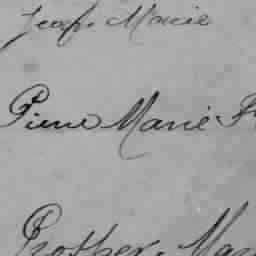 Jean Marie
Pierre Marie F
Prosper Mar